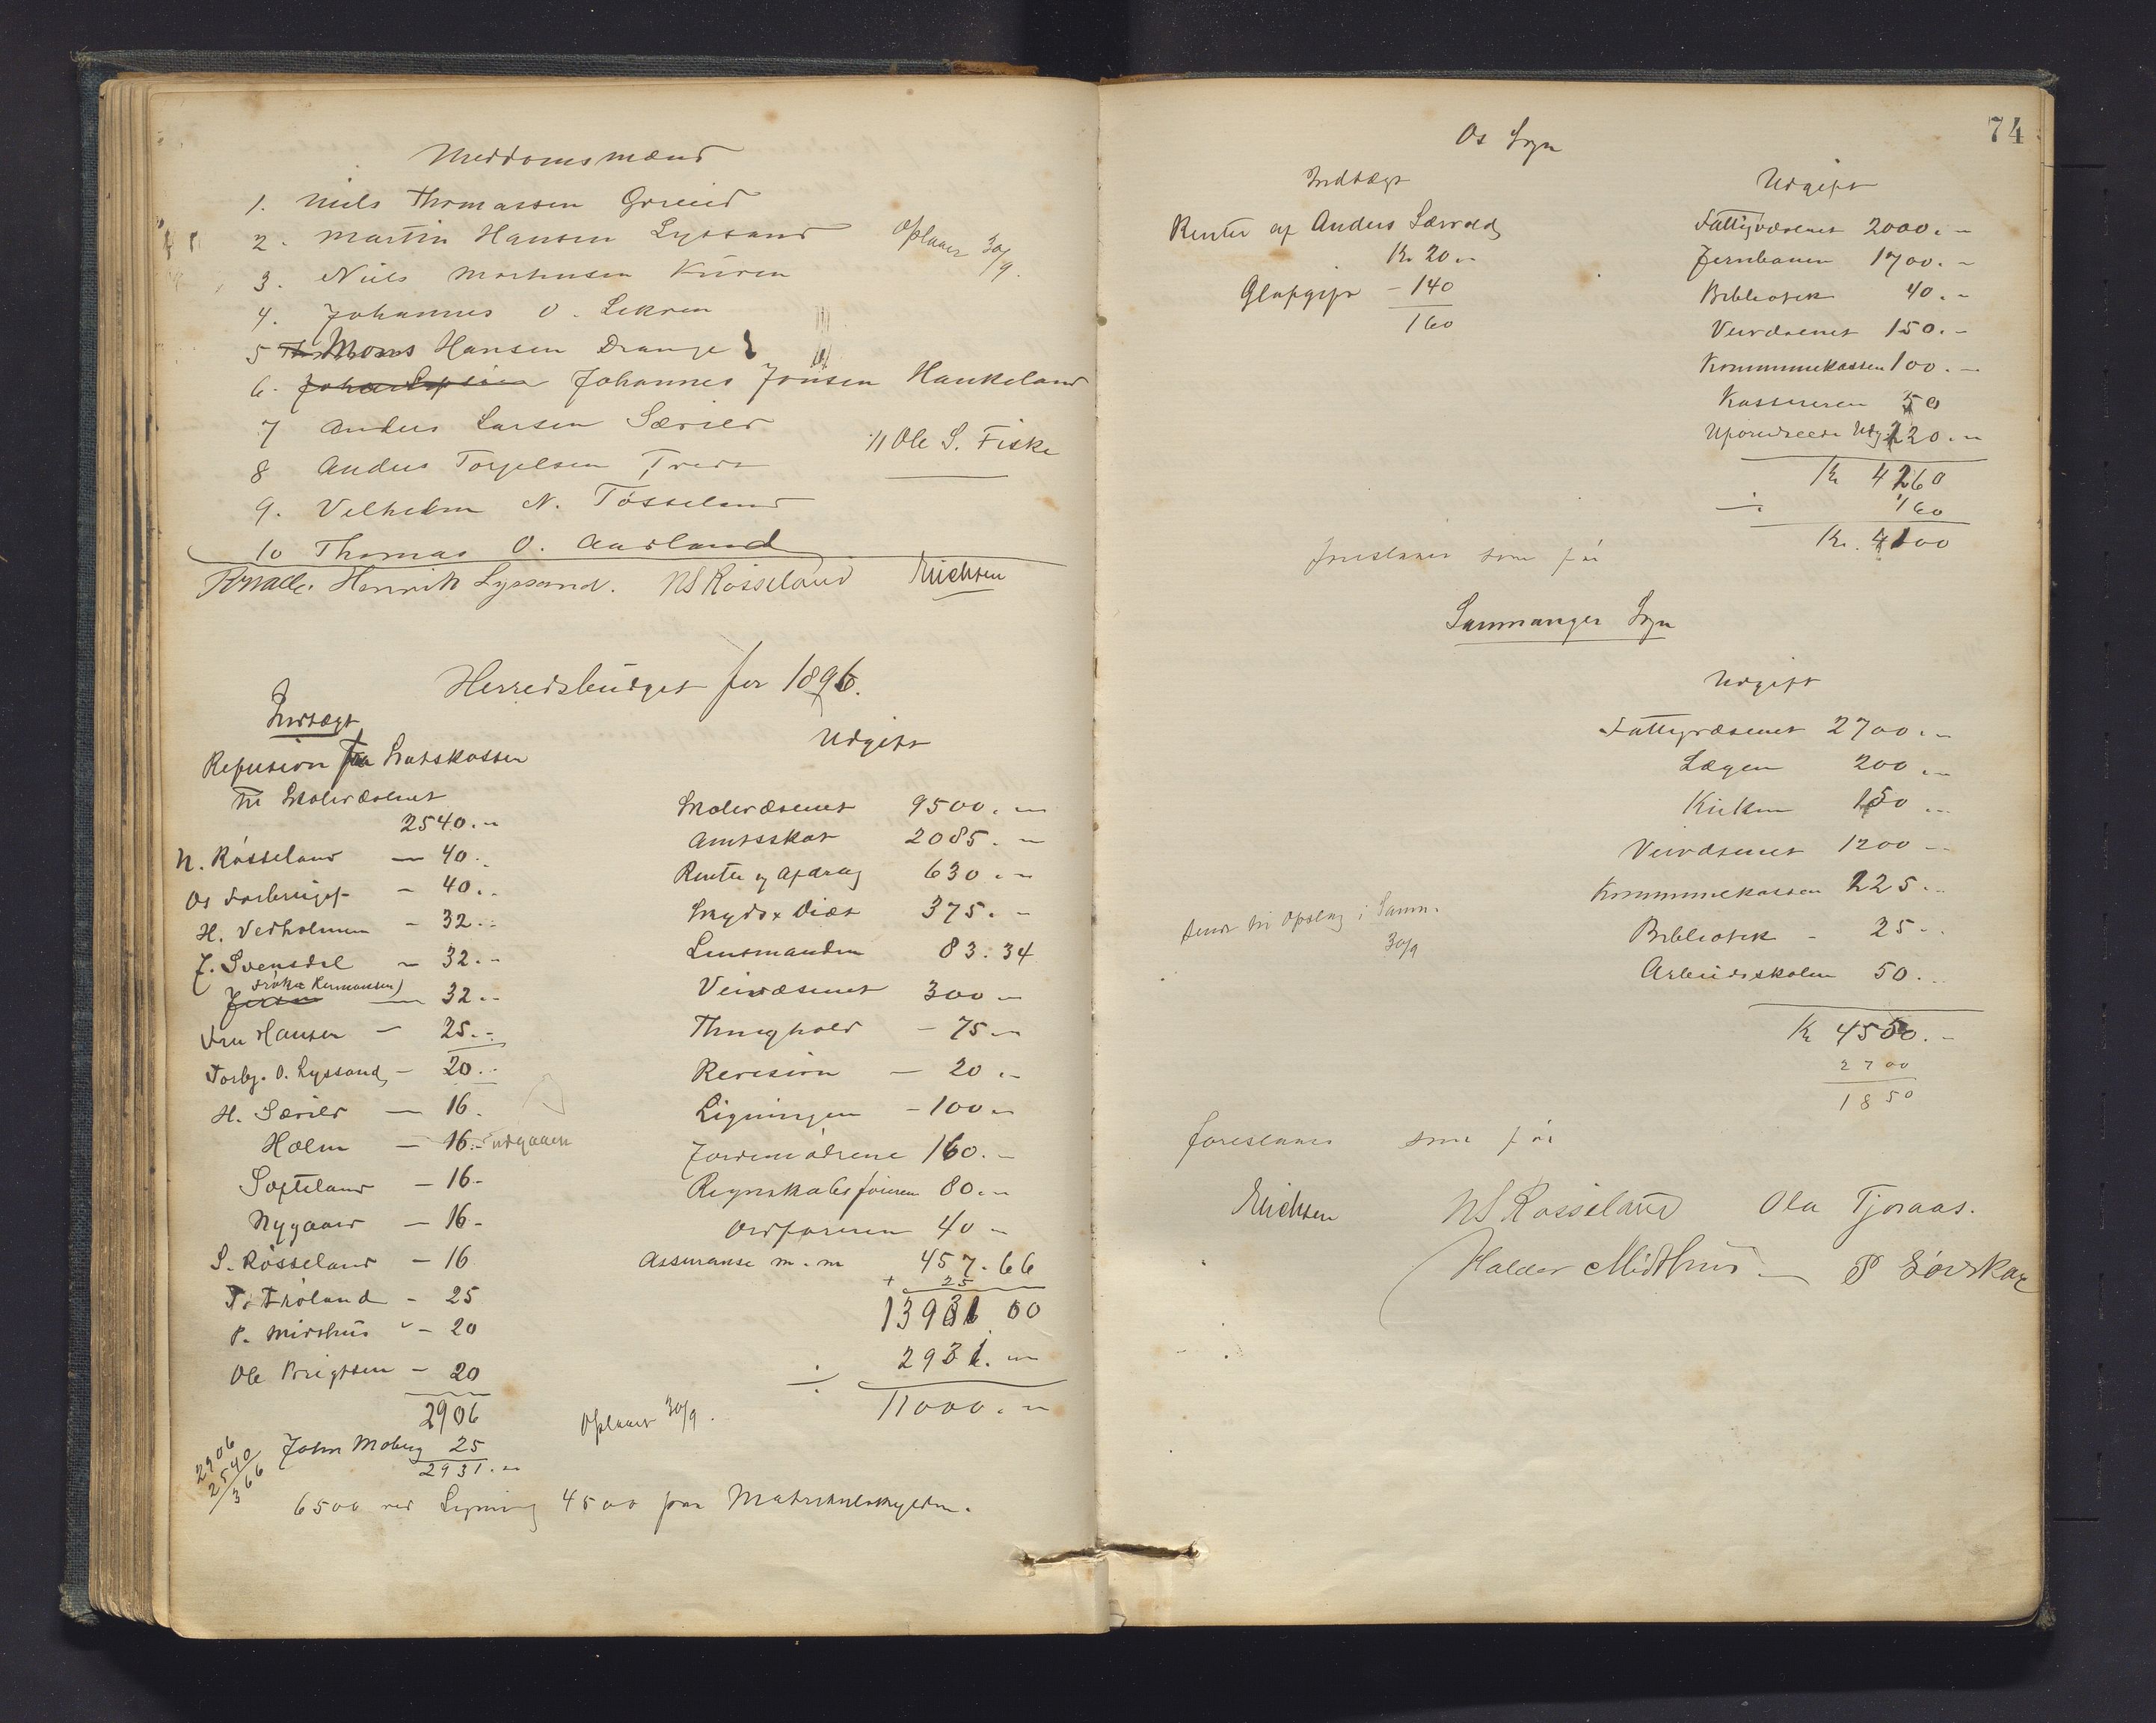 Meddomsmænd
1. Niels Thomassen Grind
2. Martin Hansen Lyssand
Opslaaes 30/9.
3. Niels Mortensen Kuven
4. Johannes O. Lekven
5 Mons Hansen Drange
6. Johannes Jonsen Haukeland
7 Anders Larsen Særvold
8 Anders Torgelsen Tveit
11 Ole S. Fiske
9. Vilhelm N. Tøsseland
10 Thomas O. Aadland
Henrik Lyssand. NS Røsseland Erichsen
Herredsbudget for 1896.
Indtægt
Refusion fra Statskassen
til Skolevæsenet
2540.–
N. Røsseland – 40..
Os Forbrugsf. – 40..
H. Vedholmen – 32..
J. Svensdal – 32.–
Frøken Hermansen)
– 32..
Fru Hansen – 25.–
Torbj. O. Lyssand – 20..
H. Særvold – 16.
Holm – 16.– udgaaen
Søfteland – 16.
Nygaard – 16–
S. Røsseland – 16
T. Høland – 25
P. Midthus – 20
Ole Brigtsen – 20
2906
John Moberg 25
2931.–
2906
2540
366
Udgift
Skolevæsenet 9500.–
Amtsskat 2085.–
Renter og Afdrag 630.–
Skyds & Diæt 375.–
Lensmanden 83.34
Veivæsenet 300–
Thinghold – 75–
Revision – 20.–
Ligningen – 100–
Jordemødrene 160.–
Regnskabsføreren 80.–
Ordføreren 40–
Assuranse m.m 457.66
+ 25
13931 00
÷ 2931.–
11000.–
Opslaaes 30/9.
6500 ved Ligning 4500 paa Matrikulskylden.
74
Os Sogn
Indtægt
Renter af Anders Særvold
Kr. 20–
– 140
160
Udgift
Fattigvæsenet 2000.–
Jernbanen 1700.–
Bibliotek 40.–
Veivæsenet 150.–
Kommunekassen 100.–
Kassereren 50
Uforudseede Udg. 220.–
Kr 4260
÷ 160
Kr. 4100
foreslaaes som før
Samnanger Sogn
Udgift
Fattigvæsenet 2700.–
Lægen 200.–
Kirken 150–
Veivæsenet 1200–
Kommunekassen 225..
Bibliotek – 25..
Arbeidsskolen 50..
Kr 4550.–
2700
1850
sendt til Opslag i Samn.
30/9
foreslaaes som før
Erichsen NS Røsseland Ola Tjoraas.
Haldor Midthus – P Løvskar